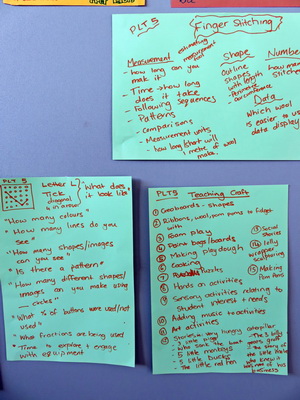 PLT5
Finger Stitching
Measurement
estimating
measurement
tool
- how long can you
make it
- Time → how long
does it take
- Following sequences
- Patterns
- Comparisons
- Measurement units
- how long/short will
1 metre of wool
make.
Shape
Outline
shapes
with length
- Perimeter
- circumference
Number
how many
stitches
Data
Which wool
is easier to use
data display
PLT 5
Letter L
Tick
diagonal
is in arrow
"What does
it look like"
"How many colours"
"How many lines do you
see"
"How many shapes/images
can you see"
"Is there a pattern"
"How many different shapes/
images can you make using
circles"
"What is of buttons were used/not
used"
"What fractions are being used
- Time to explore + engage
with equipment
PLT5 Teaching Craft
Geoboards - shapes
Ribbons, wool, pom poms to fidget
with
Room play
Paint bags/boards
Making playdough
Cooking
Puzzles
Hands on activities
Sensory activities relating to
student interest + needs
Adding music to activities
Art activities
Stories - very hungry caterpillar
- 3 little pigs
- Who sank the boat
- 5 little monkeys
- 5 little ducks
- The little red hen
- The 3 billy
goats gruff
- The story of
the little Mole
who knew it
was none of his
business
Social
Stories
Lolly
wrapper
scrapbooking
Making
Pom Poms